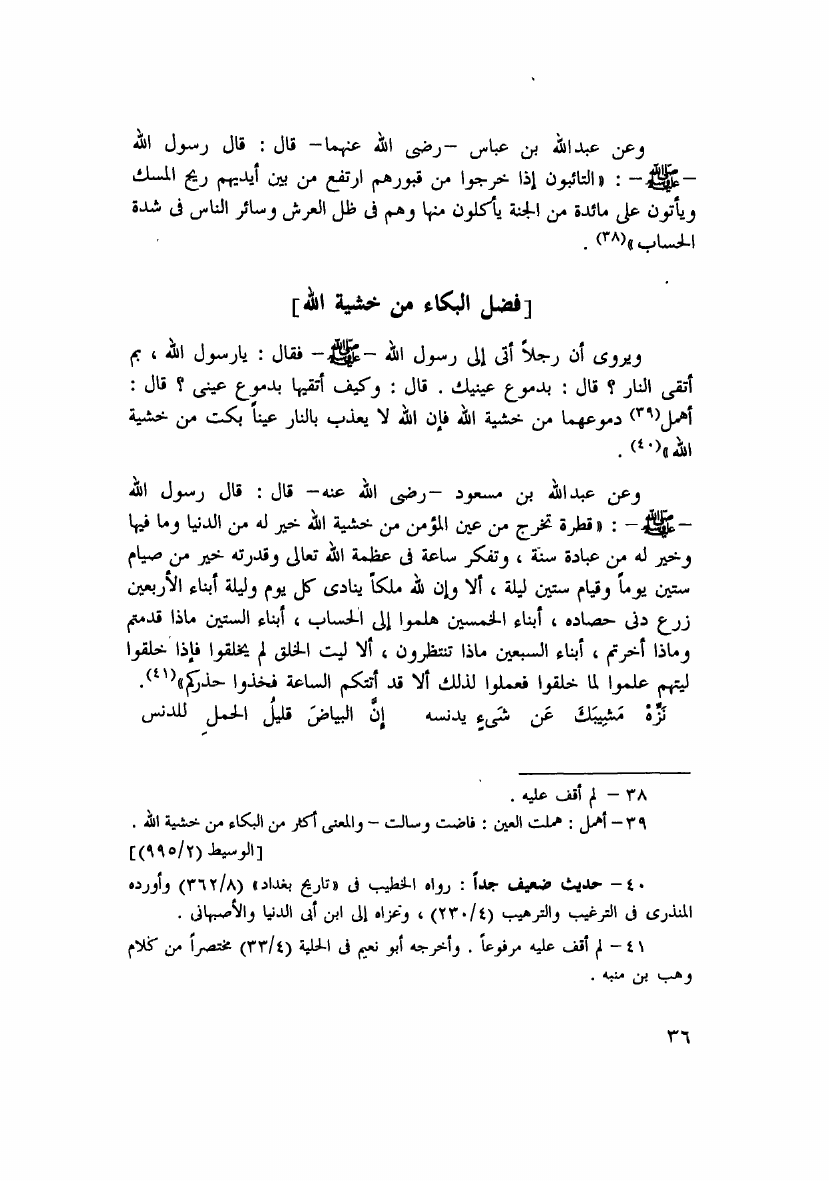 وعن عبدالله بن عباس –رضى الله عنهما– قال : قال رسول الله
–ﷺ– : «التائبون إذا خرجوا من قبورهم ارتفع من بين أيديهم ريح المسك
ويأتون على مائدة من الجنة يأكلون منها وهم فى ظل العرش وسائر الناس فى شدة
الحساب»(٣٨) .
[فضل البكاء من خشية الله]
ويروى أن رجلاً أتى إلى رسول الله –ﷺ– فقال : يارسول الله ، بم
أتقى النار ؟ قال : بدموع عينيك . قال : وكيف أتقيها بدموع عينى ؟ قال :
أهمل(٣٩) دموعهما من خشية الله فإن الله لا يعذب بالنار عيناً بكت من خشية
الله»(٤٠) .
وعن عبدالله بن مسعود –رضى الله عنه– قال : قال رسول الله
–ﷺ– : «قطرة تخرج من عين المؤمن من خشية الله خير له من الدنيا وما فيها
وخير له من عبادة سنة ، وتفكر ساعة فى عظمة الله تعالى وقدرته خير من صيام
ستين يوماً وقيام ستين ليلة ، ألا وإن لله ملكاً ينادى كل يوم وليلة أبناء الأربعين
زرع دنى حصاده ، أبناء الخمسين هلموا إلى الحساب ، أبناء الستين ماذا قدمتم
وماذا أخرتم ، أبناء السبعين ماذا تنتظرون ، ألا ليت الخلق لم يخلقوا فإذا خلقوا
ليتهم علموا لما خلقوا فعملوا لذلك ألا قد أتتكم الساعة فخذوا حذركم»(٤١).
نَزِّهْ مَشِيبَكَ عَن شَىءٍ يدنسه إِنَّ البياضَ قليلُ الحملِ للدنس
٣٨ – لم أقف عليه .
٣٩– أهمل : هملت العين : فاضت وسالت – والمعنى أكثر من البكاء من خشية الله .
[الوسيط (٩٩٥/٢)]
٤٠ – حديث ضعيف جداً : رواه الخطيب فى «تاريخ بغداد» (٣٦٢/٨) وأورده
المنذرى فى الترغيب والترهيب (٢٣٠/٤) ، وعزاه إلى ابن أبى الدنيا والأصبهانى .
٤١ – لم أقف عليه مرفوعاً . وأخرجه أبو نعيم فى الحلية (٣٣/٤) مختصراً من كلام
وهب بن منبه .
٣٦